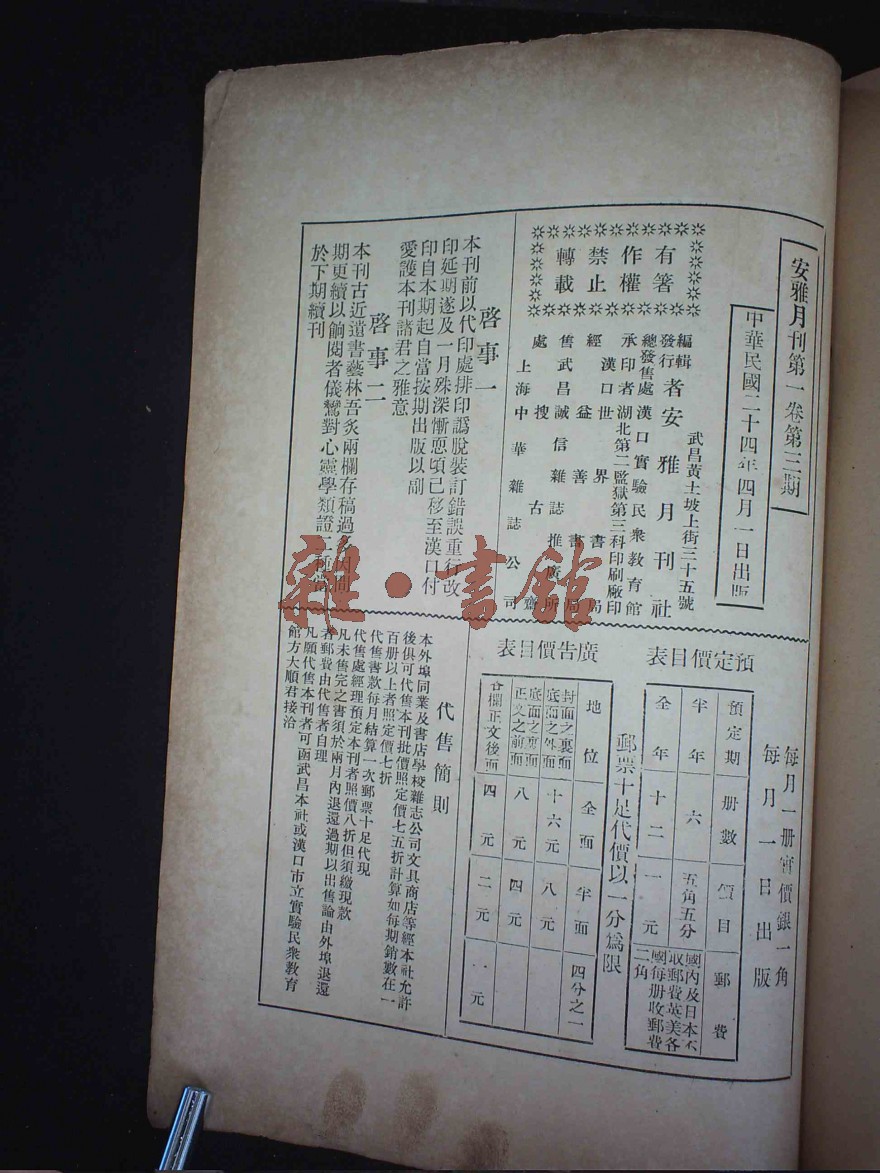 安雅月刊第一卷第三期
中華民國二十四年四月一日出版
有著
作權
禁止
轉載
武昌黃土坡上街三十五號
編輯
發行
者安雅月刊社
總發售處漢口實驗民衆教育館
承印者湖北第二監獄第三科印刷廠印
經
售
處
漢口世界書局
益善書局
武昌誠信雜誌推廣所
搜古齋
上海中華雜誌公司
啓事一
本刊前以代印處排印譌脫裝訂錯誤重行改
印延期遂及一月殊深慚恧頃已移至漢口付
印自本期起自當按期出版以副
愛護本刊諸君之雅意
啓事二
本刊古近遺書藝林吾炙兩欄存稿過多
期更續以餉閱者儀鸞對心靈學類證二種
於下期續刊
每月一册實價銀一角
每月一日出版
預定價目表
預定期
册數
價目
郵費
半年
六
五角五分
全年
十二
一元
國內及日本不
取郵費英美各
國每册收郵費
二角
郵票十足代價以一分爲限
廣告價目表
地位
全面
半面
四分之一
封面之裏面
底面之外面
十六元
八元
底面之裏面
正文之前面
八元
四元
各欄正文後面
四元
二元
元
代售簡則
本外埠同業及書店學校雜志公司文具商店等經本社允許
後俱可代售本刊批價照定價七五折計算如每期銷數在一
百册以上者照定價七折
代售書款每月結算一次郵票十足代現
代售處經理預定本刊者照價八折但須繳現款
凡未售完之書須於兩月內退還過期以出售論由外埠退還
者郵費由代售者自理
凡願代售本刊者可函武昌本社或漢口市立實驗民衆教育
館方大順君接洽
雜·書館